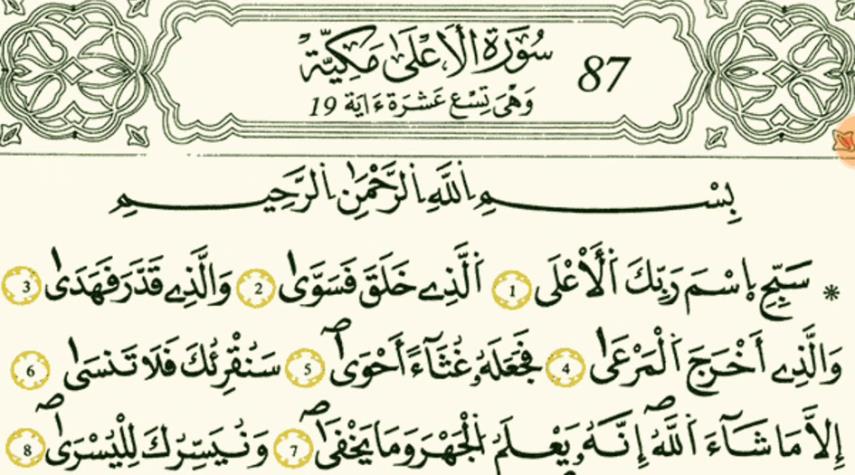 سُورَةُ الْأَعْلَىٰ مَكِّيَّةٌ 87
وَهْيَ تِسْعَ عَشْرَةَ ءَايَةً 19
بِسْمِ اِ۬للَّهِ اِ۬لرَّحْمَٰنِ اِ۬لرَّحِيمِ
* سَبِّحِ اِ۪سْمَ رَبِّكَ اَ۬لَأَعْلَى 1 اَ۬لَّذِے خَلَقَ فَسَوَّىٰ 2 وَالَّذِے قَدَّرَ فَهَدَىٰ 3
وَالَّذِے أَخْرَجَ اَ۬لْمَرْعَىٰ 4 فَجَعَلَهُۥ غُثَآءً أَحْوَىٰۖ 5 سَنُقْرِئُكَ فَلَا تَنسَىٰ 6
إِلَّا مَا شَآءَ اَ۬للَّهُۖ إِنَّهُۥ يَعْلَمُ اُ۬لْجَهْرَ وَمَا يَخْفَىٰۖ 7 وَنُيَسِّرُكَ لِلْيُسْرَىٰۖ 8